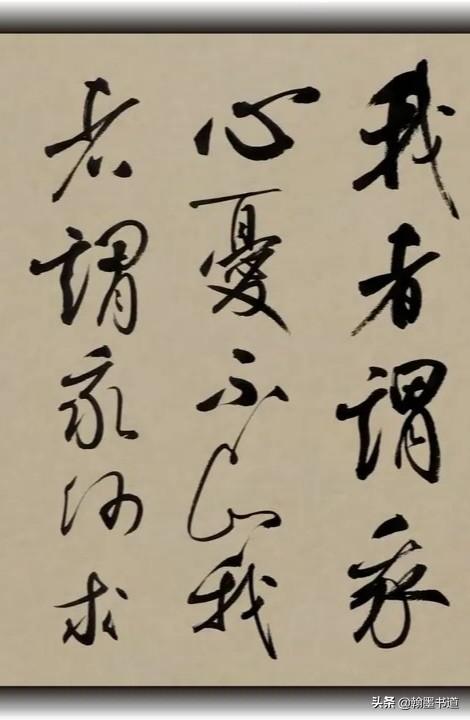 我者謂我
心憂不知我
者謂我何求
头条 @翰墨书道